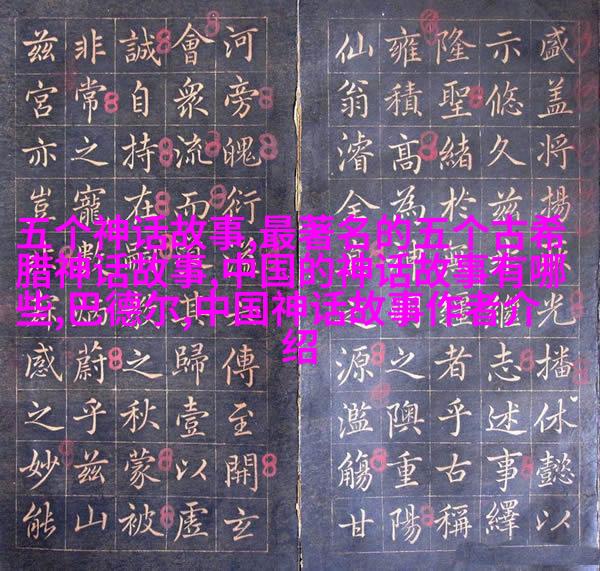 五个神话故事,最著名的五个古希
腊神话故事,中国的神话故事有哪
些,巴德尔,中国神话故事作者介
绍
盛盖将揚光播休懿以
示悠久兹志述事繹
隆聖緒於者乎古稱
雍積高為神之隩重陽
仙翁濬全源濫觴甘
河旁魄衍傳至開玄
會衆流而其歸壹以虛
誠自持在之秋蒙被
非常之寵蔚乎兹山
兹宮亦豈感之妙能